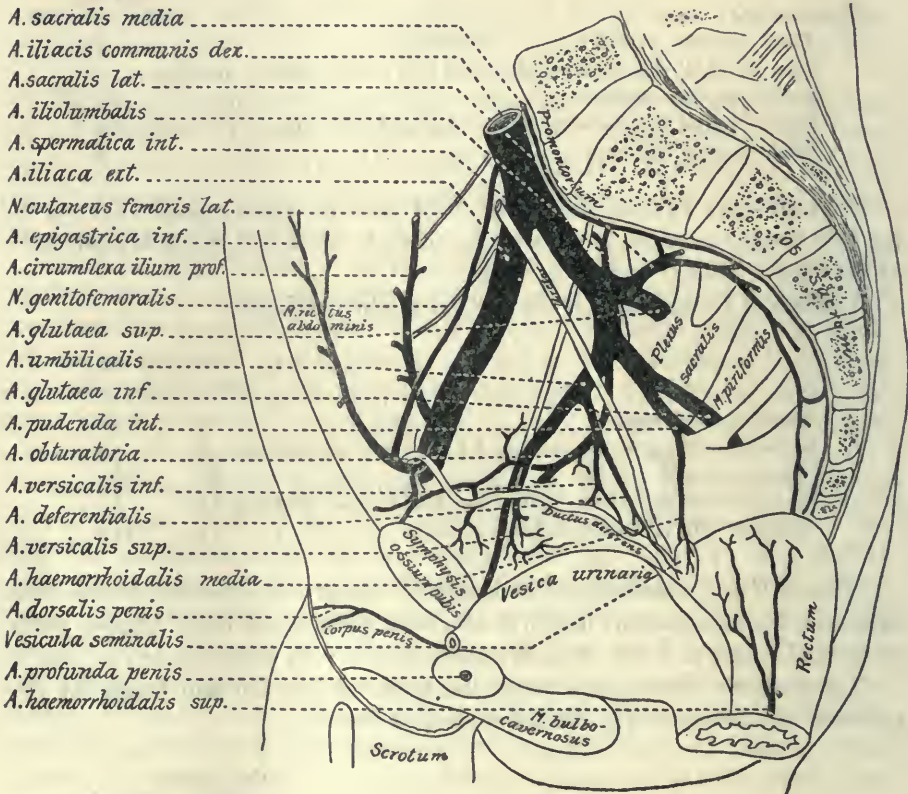 A. sacralis media
A. iliacis communis dex.
A. sacralis lat.
A. iliolumbalis
A. spermatica int.
A. iliaca ext.
N. cutaneus femoris lat.
A. epigastrica inf.
A. circumflexa ilium prof.
N. genitofemoralis
A. glutaea sup.
A. umbilicalis
A. glutaea inf
A. pudenda int.
A. obturatoria
A. versicalis inf.
A. deferentialis
A. versicalis sup.
A. haemorrhoidalis media
A. dorsalis penis
Vesicula seminalis
A. profunda penis
A. haemorrhoidalis sup.
Promontorium
os
M. rectus
abdominis
Plexus
sacralis
M. piriformis
ductus deferens
Symphysis
ossium pubis
Vesica urinaria
Corpus penis
Rectum
M. bulbo-
cavernosus
Scrotum